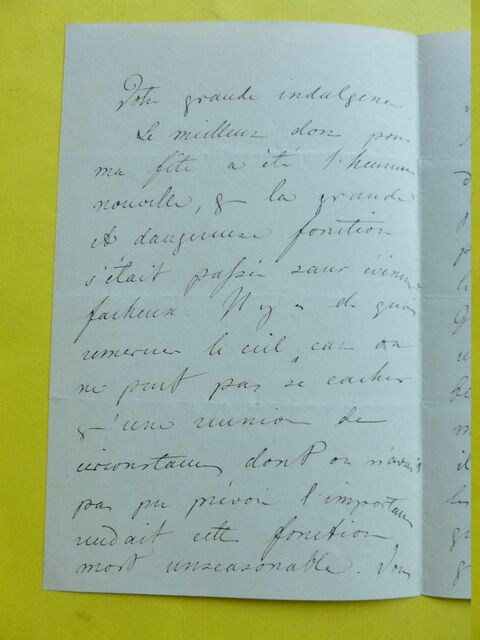 Votre grande indulgence
Le meilleur don pour
ma fête a été l'heureuse
nouvelle, & la grande
et dangereuse fonction
s'était passée sans
facheux. Il y a de quoi
remercier le ciel, car on
ne peut pas se cacher
qu'une reunion de
circonstances dont on n'avait
pas pu prévoir l'importance
rendait cette fonction
most unseasonable. Vous